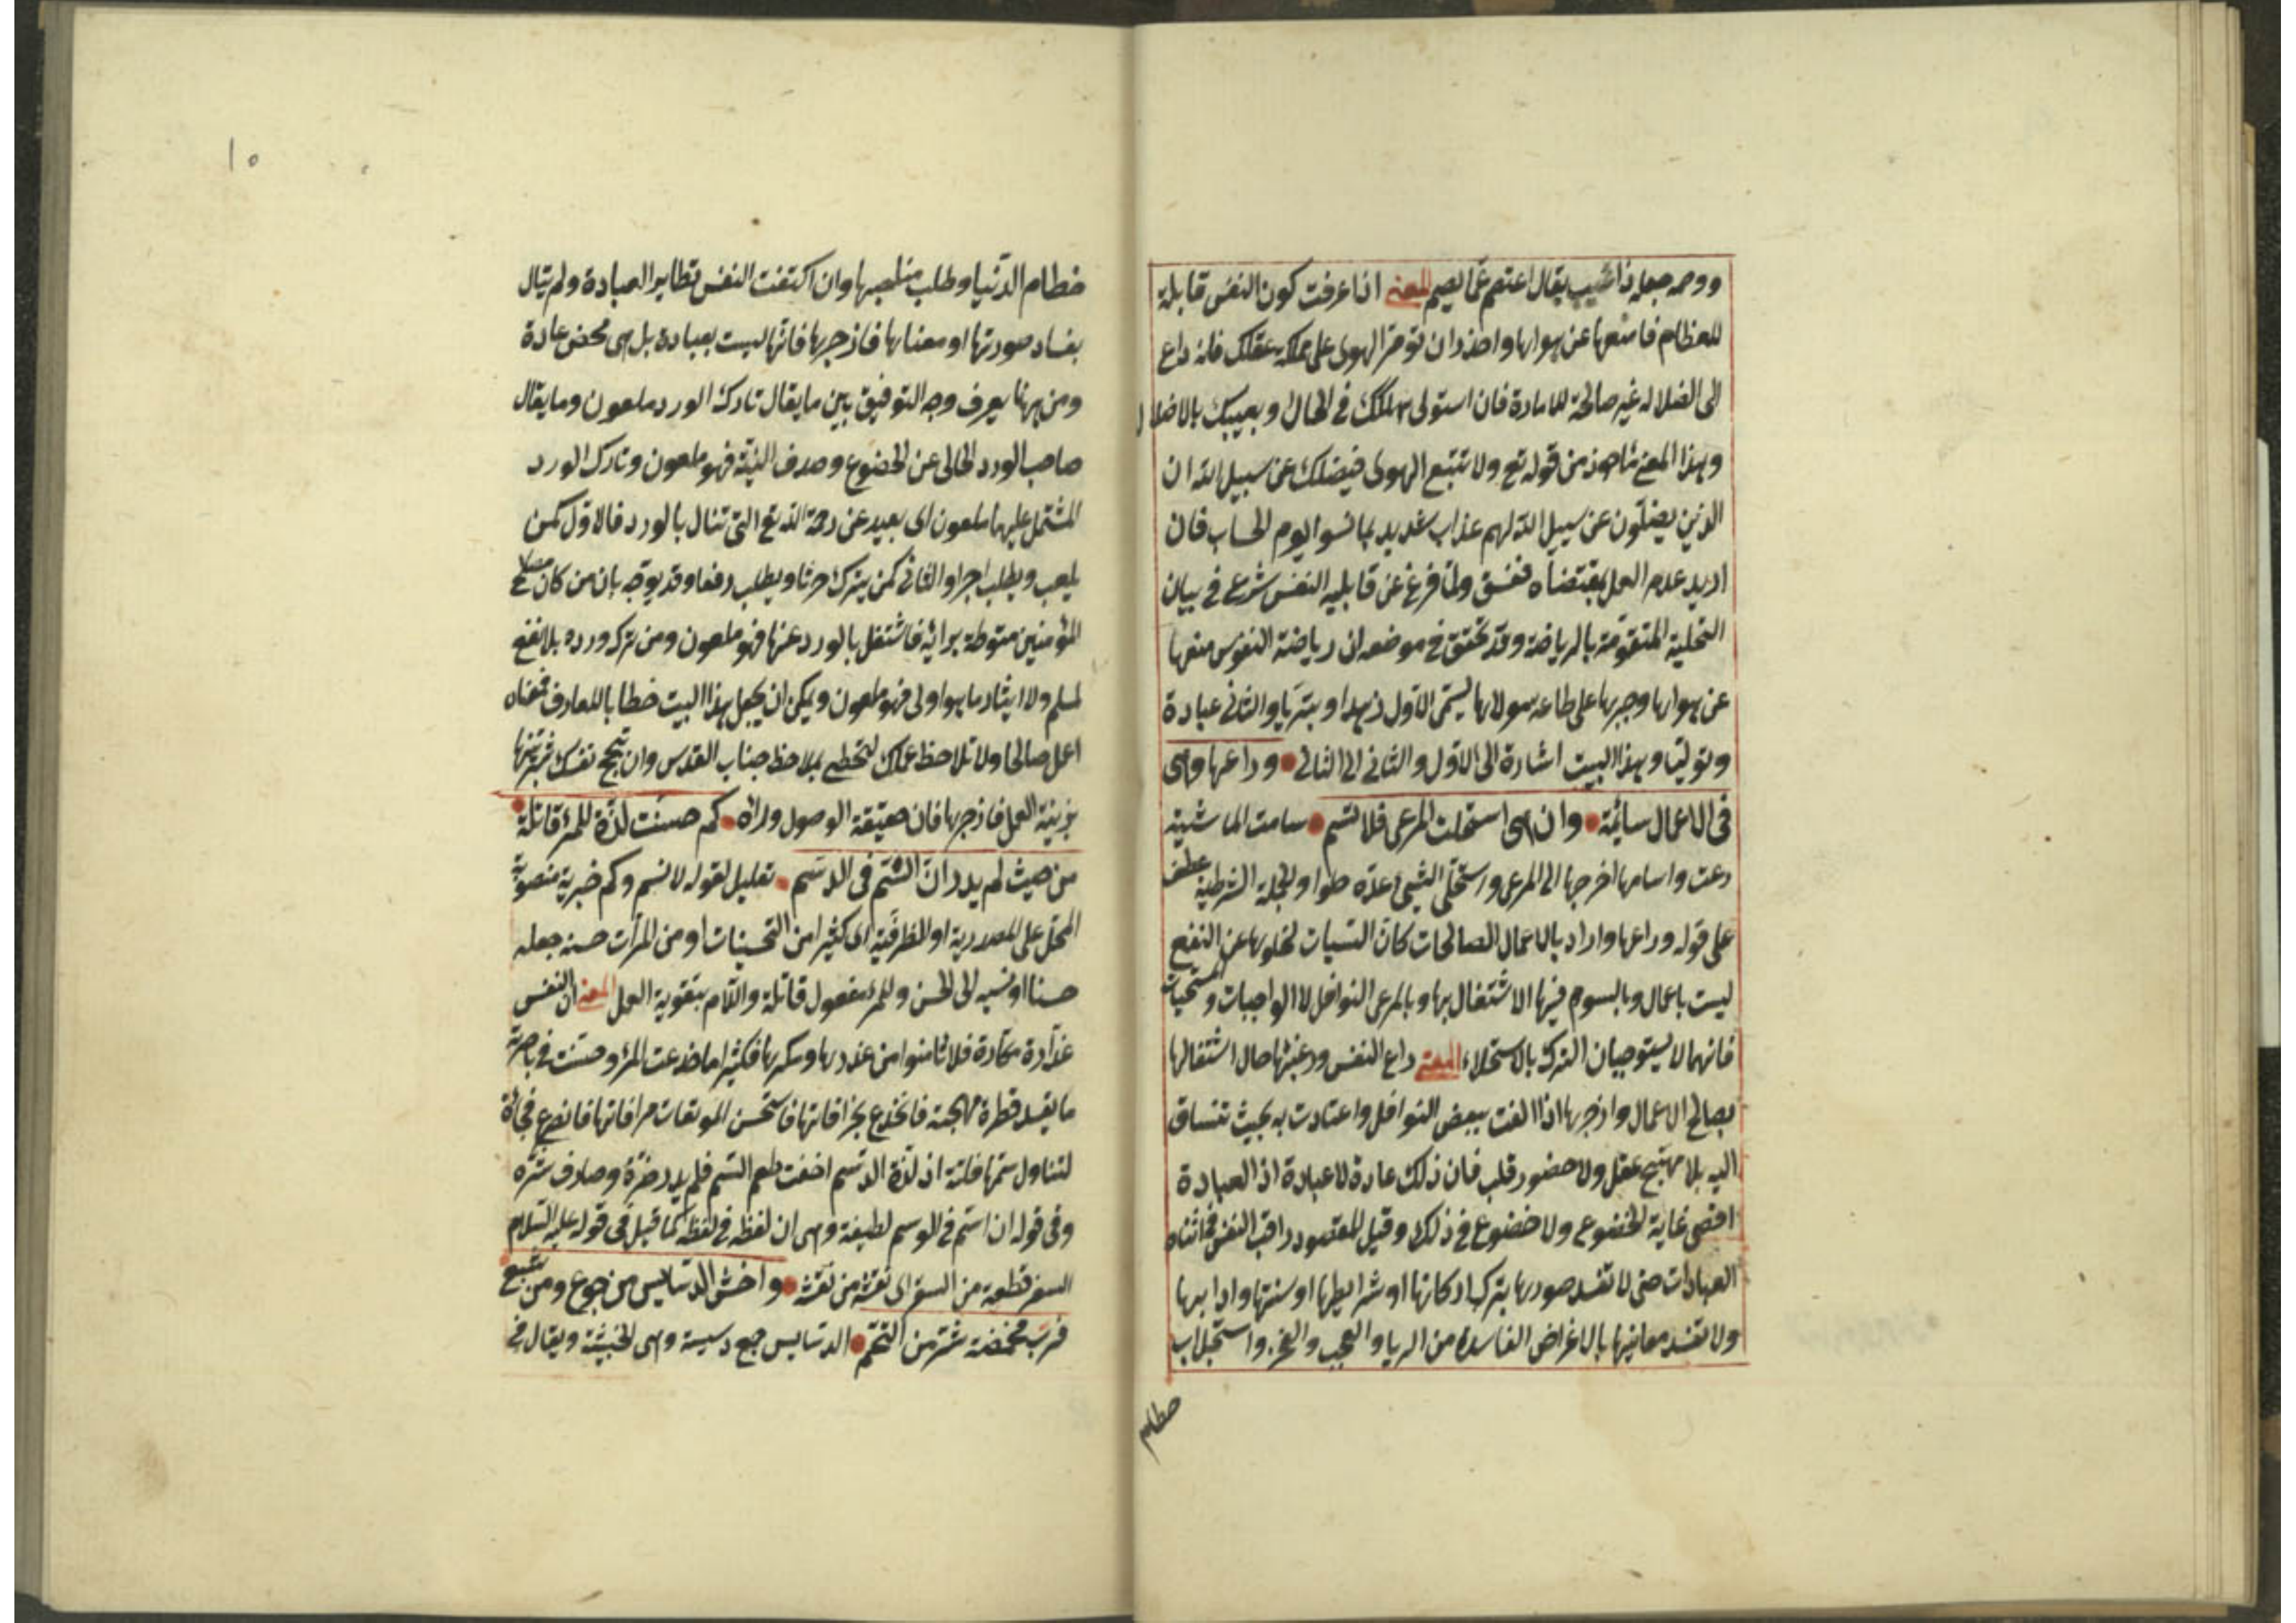 ووصمه جعله ذا عيب يقال اعتصم عما يصم المعنى اذا عرفت كون النفس قابلة
للعظام فامنعها عن هواها واحذر ان تؤمر الهوى على مملكة عقلك فانه داع
الى الضلالة غير صالحة للامارة فان استولى اهلكك في الحال ويعيبك بالاضلال
وهذا المعنى مأخوذ من قوله تع ولا تتبع الهوى فيضلك عن سبيل الله ان
الذين يضلون عن سبيل الله لهم عذاب شديد بما نسوا يوم الحساب فان
اريد عدم العمل بمقتضاه ففسق ولما فرغ عن قابلية النفس شرع في بيان
التحلية المتقومة بالرياضة وقد تحقق في موضعه ان رياضة النفوس منعها
عن هواها وجبرها على طاعة مولاها ليسمى الاول زهدا وتبريا والثاني عبادة
وتوليا وبهذا البيت اشارة الى الاول والثاني الى الثاني وراعها وهى
فى الاعمال سائمة وان هى استحلت المرعى فلا تسم سامت الماشية
رعت واسامها اخرجها الى المرعى واستحلى الشيئ عده حلوا والجملة الشرطية عطف
على قوله وراعها واراد بالاعمال الصالحات كان السيات لخلوها عن النفع
ليست باعمال وبالسوم فيها الاشتغال بها وبالمرعى النوافل لا الواجبات والمستحبات
فانهما لا يستوجبان الترك بالاستحلاء المعنى راع النفس ورغبتها حال اشتغالها
بصالح الاعمال وازجرها اذا الفت ببعض النوافل واعتادت به بحيث تنساق
اليه بلا تهييج عقل ولا حضور قلب فان ذلك عادة لا عبادة اذ العبادة
اقصى غاية الخضوع ولا خضوع في ذلك وقيل المقصود راقب النفس في اثناء
العبادات حتى لا تفسد صورها بترك اركانها او شرايطها او سننها وادابها
ولا تفسد معانيها بالاغراض الفاسدة من الريا والعجب والفخر واستجلاب
حطام
١٥
حطام الدنيا وطلب مناصبها وان اكتفت النفس بظاهر العبادة ولم تبال
بفساد صورتها او معناها فازجرها فانها ليست بعبادة بل هى محض عادة
ومن ههنا يعرف وجه التوفيق بين ما يقال تارك الورد ملعون وما يقال
صاحب الورد الخالى عن الخضوع وصدق النية فهو ملعون وتارك الورد
المشتمل عليهما ملعون اى بعيد عن رحمة الله تع التى تنال بالورد فالاول كمن
يلعب ويطلب اجرا والثانى كمن يترك حرثا ويطلب رفعا وقد يوجه بان من كان مصالح
المؤمنين منوطة برائه فاشتغل بالورد عنها فهو ملعون ومن ترك ورده بلا نفع
لمسلم ولا ايثار ما هو اولى فهو ملعون ويمكن ان يجعل هذا البيت خطابا للعارف فمعناه
اعمل صالحا ولا تلاحظ عملك لتحظى بملاحظ جناب القدس وان تبجح نفسك
بزينة العمل فازجرها فان حقيقة الوصول وراه كم حسنت لذة للمرء قاتلة
من حيث لم يدر ان السم فى الدسم تعليل لقوله لا تسم وكم خبرية منصوبة
المحل على المصدرية او الظرفية اى كثيرا من التحسينات او من المرات حسنه جعله
حسنا او نسبه الى الحسن وللمرء مفعول قاتلة واللام بتقوية العمل المعنى ان النفس
غدارة مكارة فلا تامنوا من غدرها ومكرها فكثيرا ما خدعت المرء وحسنت في باصرته
ما يفسد فطرة مهجته فانخدع بخرافاتها فاستحسن الموبقات فانصرع فجائة
لتناول سمها فلتة اذ لذة الدسم اخفت طعم السم فلم يدر ضره وصادف شره
وفى قوله ان السم في الدسم لطيفة وهى ان لفظه في لفظه كما قيل فى قوله عليه السلام
السفر قطعة من السقر اى نقشه من نقشه واخش الدسايس من جوع ومن شبع
فرب مخمصة شر من التخم الدسايس جمع دسيسة وهى الخبيثة ويقال في